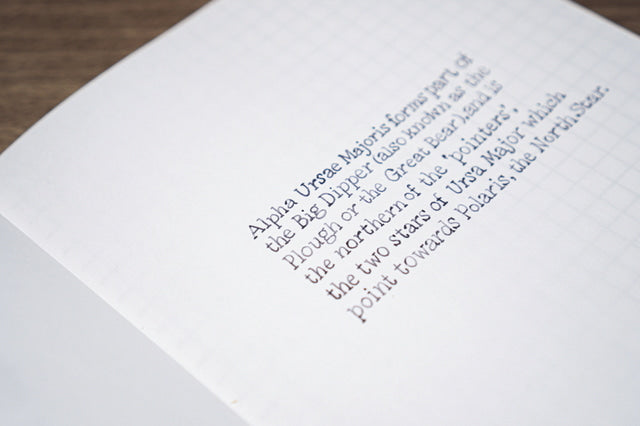 Alpha Ursae Majoris forms part of
the Big Dipper (also known as the
Plough or the Great Bear), and is
the northern of the 'pointers',
the two stars of Ursa Major which
point towards Polaris, the North Star.